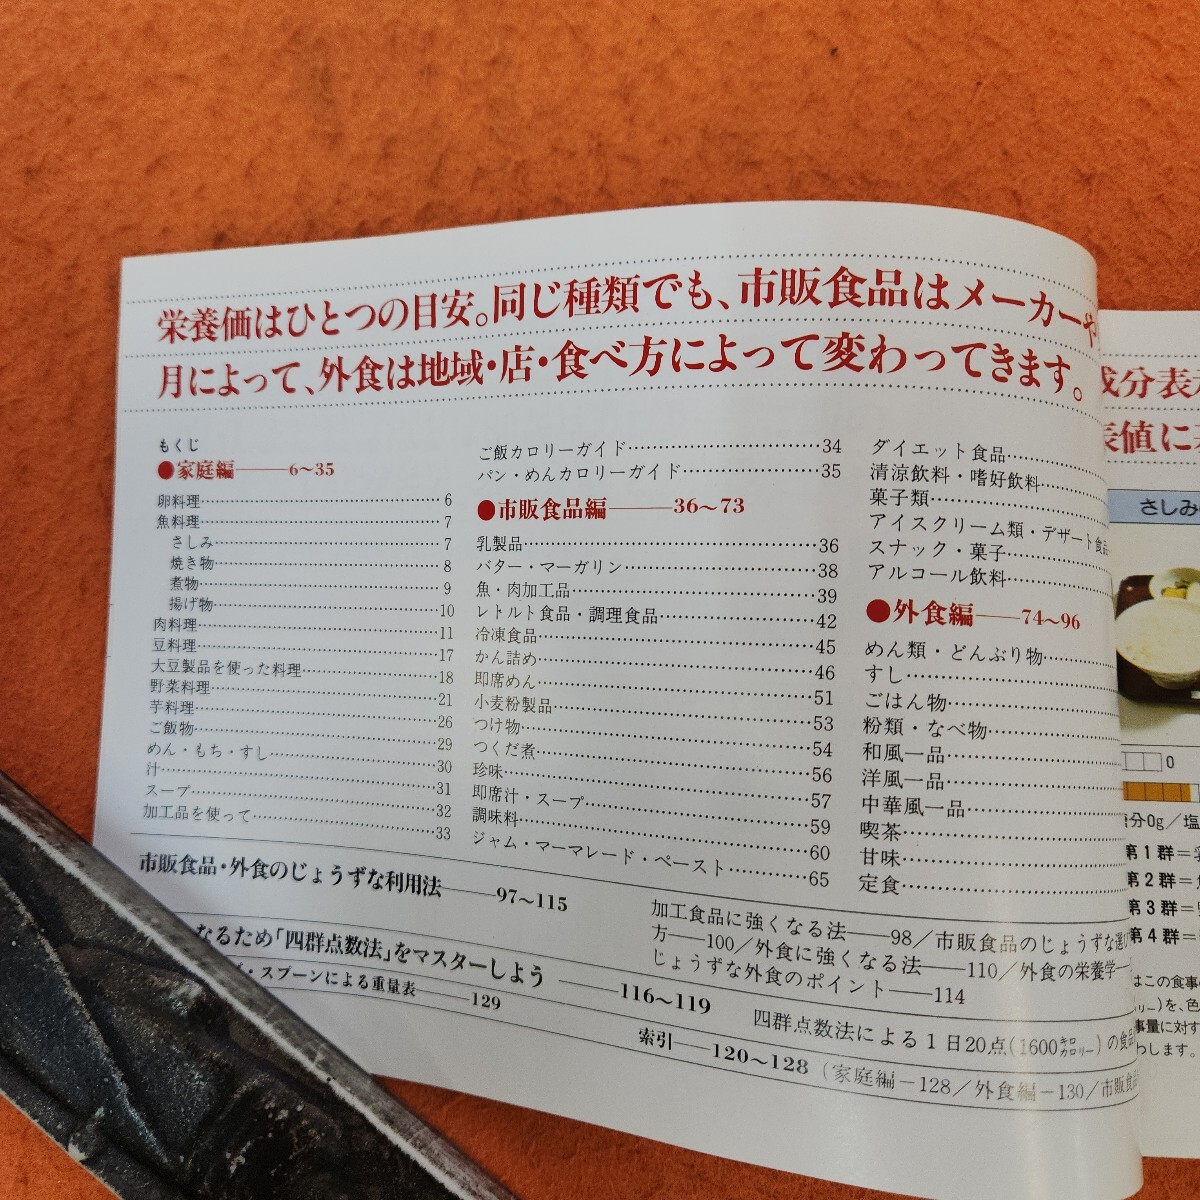 栄養価はひとつの目安。同じ種類でも、市販食品はメーカーや
月によって、外食は地域・店・食べ方によって変わってきます。
もくじ
●家庭編——6～35
卵料理……6
魚料理……7
さしみ……7
焼き物……8
煮物……9
揚げ物……10
肉料理……11
豆料理……17
大豆製品を使った料理……18
野菜料理……21
芋料理……26
ご飯物……29
めん・もち・すし……30
汁……31
スープ……32
加工品を使って……33
ご飯カロリーガイド……34
パン・めんカロリーガイド……35
●市販食品編——36～73
乳製品……36
バター・マーガリン……38
魚・肉加工品……39
レトルト食品・調理食品……42
冷凍食品……45
かん詰め……46
即席めん……51
小麦粉製品……53
つけ物……54
つくだ煮……56
珍味……57
即席汁・スープ……59
調味料……60
ジャム・マーマレード・ペースト……65
ダイエット食品……
清涼飲料・嗜好飲料……
菓子類……
アイスクリーム類・デザート食品
スナック・菓子……
アルコール飲料……
●外食編——74～96
めん類・どんぶり物……
すし……
ごはん物……
粉類・なべ物……
和風一品……
洋風一品……
中華風一品……
喫茶……
甘味……
定食……
市販食品・外食のじょうずな利用法——97～115
加工食品に強くなる法——98／市販食品のじょうずな選び
方——100／外食に強くなる法——110／外食の栄養学—
じょうずな外食のポイント——114
なるため「四群点数法」をマスターしよう——116～119
四群点数法による1日20点(1600キロカロリー)の食品
・スプーンによる重量表——129
索引——120～128(家庭編－128／外食編－130／市販食品
成分表
値に
さしみ
0
分0g／塩
第1群＝
第2群＝
第3群＝
第4群＝
はこの食事の
リー)を、色
事量に対す
わします。